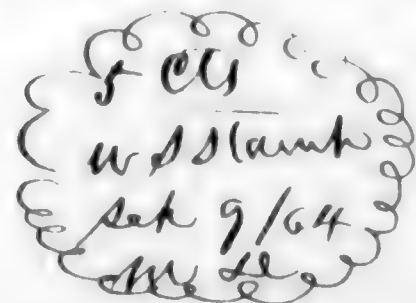 5 cts
U S Stamp
Feb 9/64
M Le